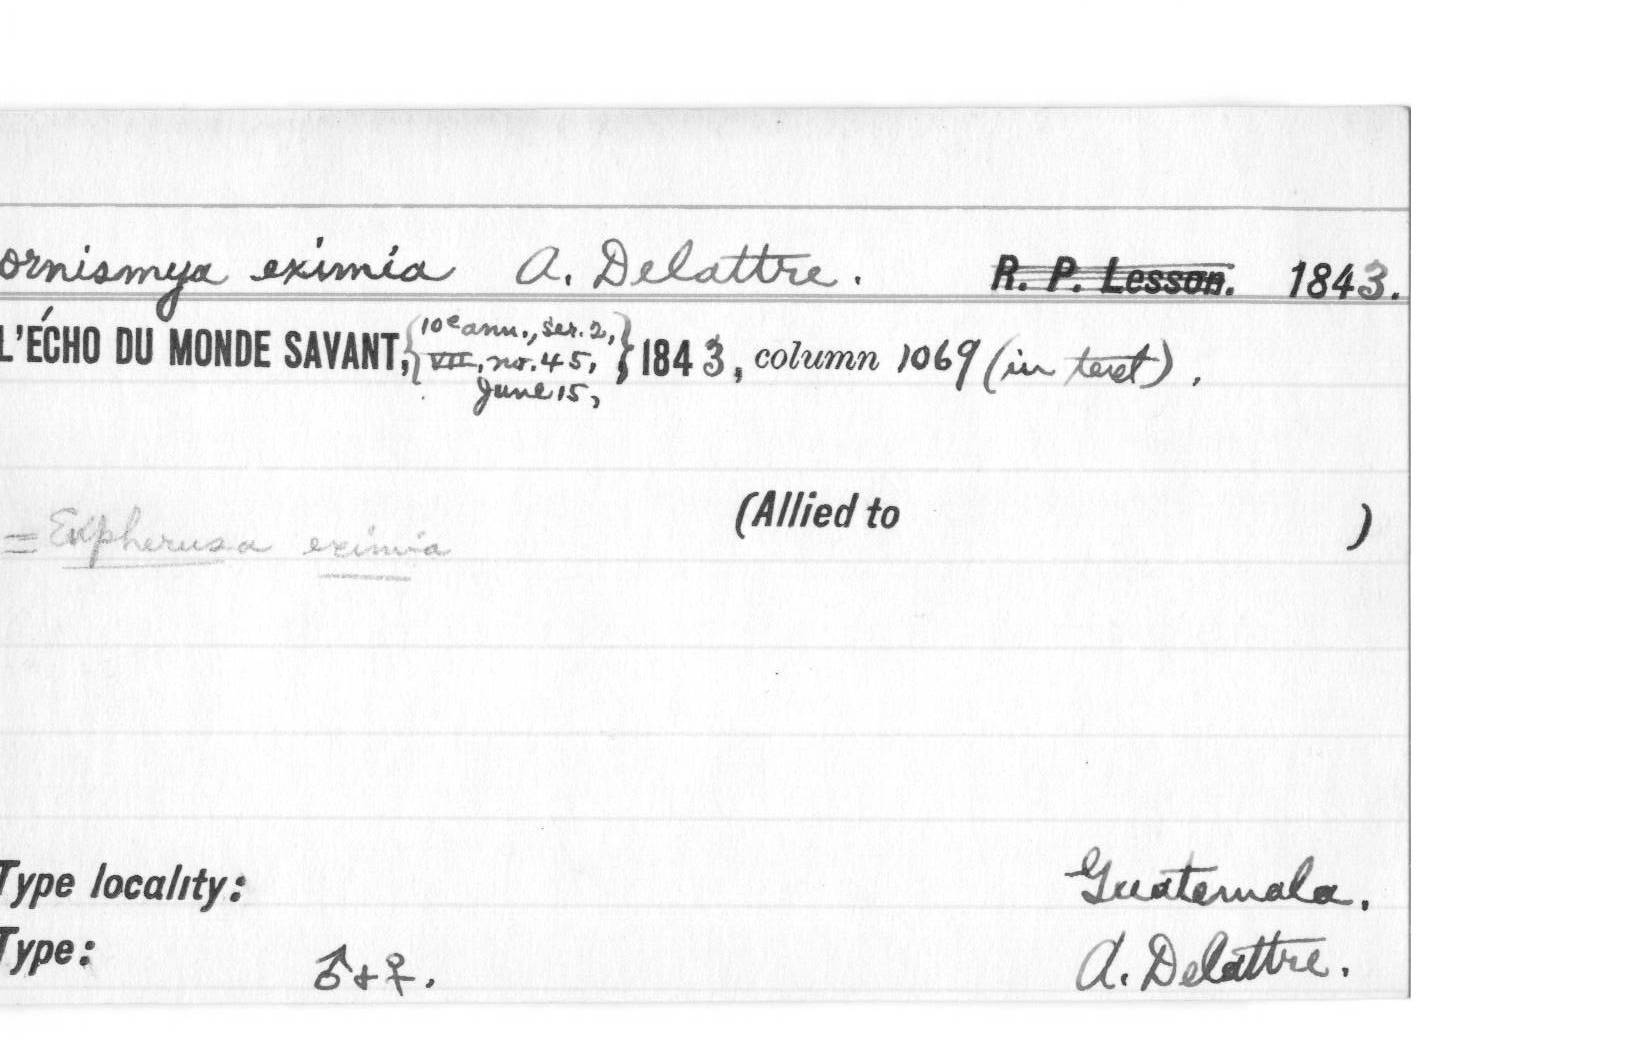 ornismya eximia A. Delattre. R. P. Lesson. 1843.
L'ÉCHO DU MONDE SAVANT, {10e ann., ser. 2,
VII, no. 45,
June 15,} 1843, column 1069 (in text).
= Eupherusa eximia (Allied to )
Type locality: Guatemala.
Type: ♂ + ♀. A. Delattre.